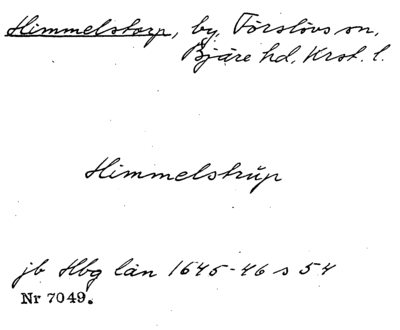 Himmelstorp, by, Förslövs sn,
Bjäre hd, Krst. l.
Himmelstrŭp
jb Hbg län 1645-46 s 54
Nr 7049.